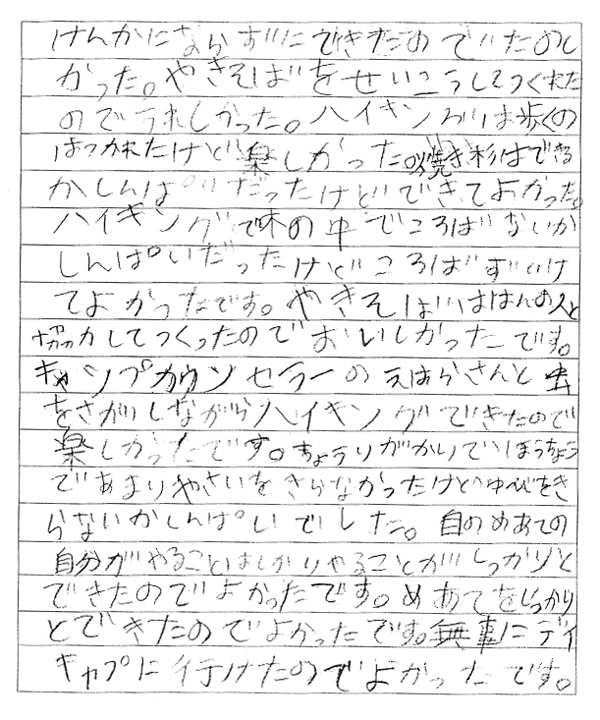 けんかにならずにできたのでたのし
かった。やきそばをせいこうしてつくれた
のでうれしかった。ハイキングは歩くの
はつかれたけど楽しかった。焼き杉はできる
かしんぱいだったけどできてよかった。
ハイキングで味の中でころばないか
しんぱいだったけどころばずにいけ
てよかったです。やきそばははんの人と
協力してつくったのでおいしかったです。
キャンプカウンセラーのえはらさんと虫
をさがしながらハイキングできたので
楽しかったです。ちょうりがかりでほうちょう
であまりやさいをきらなかったけどゆびをき
らないかしんぱいでした。自のめあての
自分がやることはしかりやることがしっかりと
できたのでよかったです。めあてをしっかり
とできたのでよかったです。無事にデイ
キャプに行けたのでよかったです。